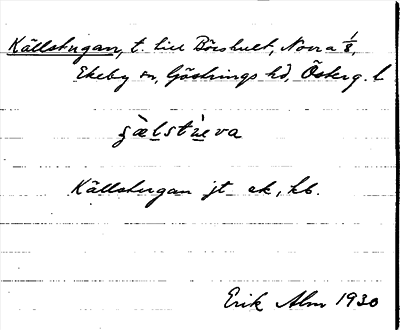 Källstugan, t. till Börshult, Norra 1/8,
Ekeby sn, Göstrings hd, Österg. l
Källstugan jt ek, hb.
Erik Alm 1930